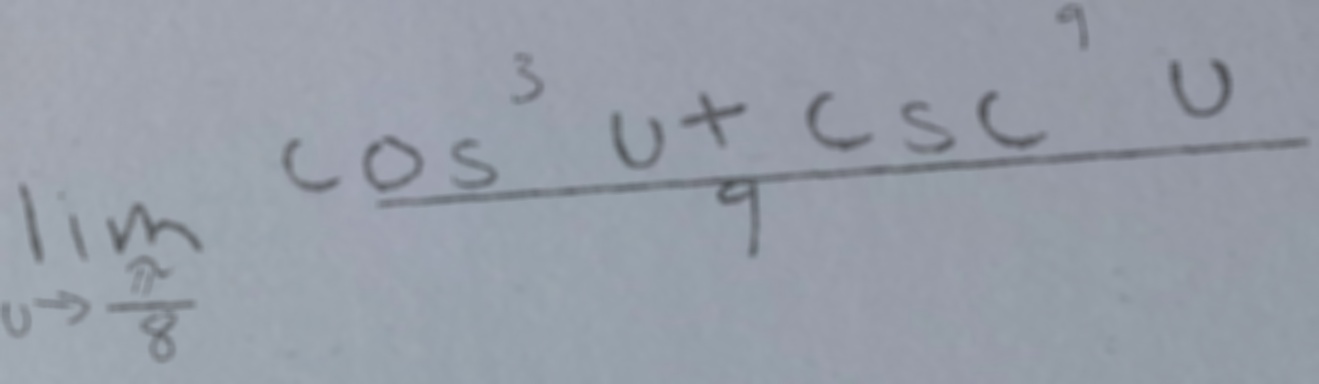 \lim_{u \to \frac{\pi}{8}} \frac{\cos^3 u + \csc^9 u}{9}